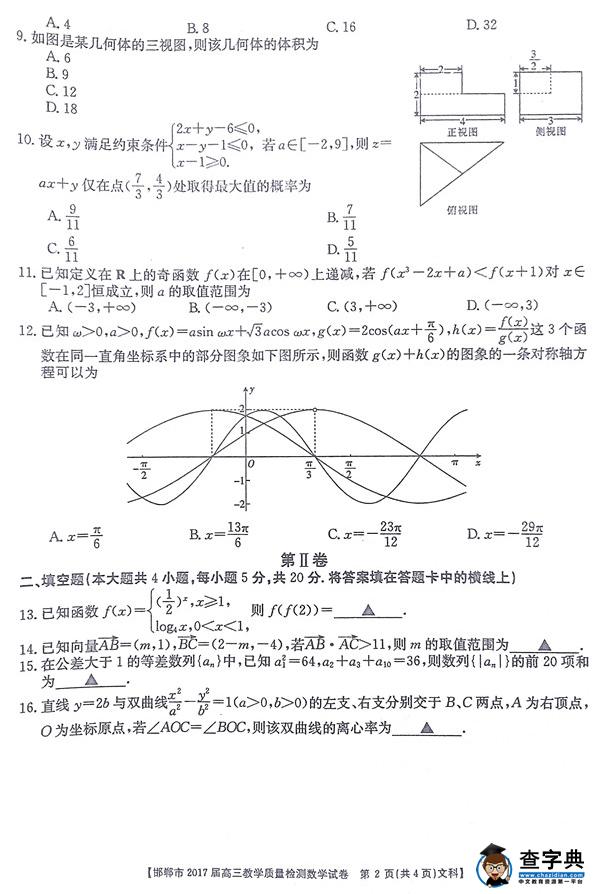 A. 4 B. 8 C. 16 D. 32
9. 如图是某几何体的三视图,则该几何体的体积为
A. 6
B. 9
C. 12
D. 18
2
1
2
4
正视图
3/2
1
3
侧视图
俯视图
10. 设 x,y 满足约束条件{2x+y-6≤0, x-y-1≤0, x-1≥0. 若 a∈[-2,9],则 z=
ax+y 仅在点(7/3,4/3)处取得最大值的概率为
A. 9/11 B. 7/11
C. 6/11 D. 5/11
11. 已知定义在 R 上的奇函数 f(x)在[0,+∞)上递减,若 f(x³-2x+a)<f(x+1)对 x∈
[-1,2]恒成立,则 a 的取值范围为
A. (-3,+∞) B. (-∞,-3) C. (3,+∞) D. (-∞,3)
12. 已知 ω>0,a>0,f(x)=asin ωx+√3acos ωx,g(x)=2cos(ax+π/6),h(x)=f(x)/g(x)这 3 个函
数在同一直角坐标系中的部分图象如下图所示,则函数 g(x)+h(x)的图象的一条对称轴方
程可以为
y
2
1
-π/2 O π/3 π/2 π x
-1
-2
A. x=π/6 B. x=13π/6 C. x=-23π/12 D. x=-29π/12
第Ⅱ卷
二、填空题(本大题共 4 小题,每小题 5 分,共 20 分. 将答案填在答题卡中的横线上)
13. 已知函数 f(x)={(1/2)ˣ,x≥1, log₄x,0<x<1, 则 f(f(2))=____▲____.
14. 已知向量AB=(m,1),BC=(2-m,-4),若AB·AC>11,则 m 的取值范围为____▲____.
15. 在公差大于 1 的等差数列{aₙ}中,已知 a₁²=64,a₂+a₃+a₁₀=36,则数列{|aₙ|}的前 20 项和
为____▲____.
16. 直线 y=2b 与双曲线x²/a²-y²/b²=1(a>0,b>0)的左支、右支分别交于 B、C 两点,A 为右顶点,
O 为坐标原点,若∠AOC=∠BOC,则该双曲线的离心率为____▲____.
【邯郸市 2017 届高三教学质量检测数学试卷 第 2 页(共 4 页)文科】
查字典
www.chazidian.com
中文教育资源第一平台